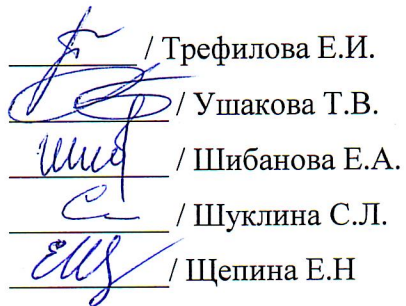 / Трефилова Е.И.
/ Ушакова Т.В.
/ Шибанова Е.А.
/ Шуклина С.Л.
/ Щепина Е.Н